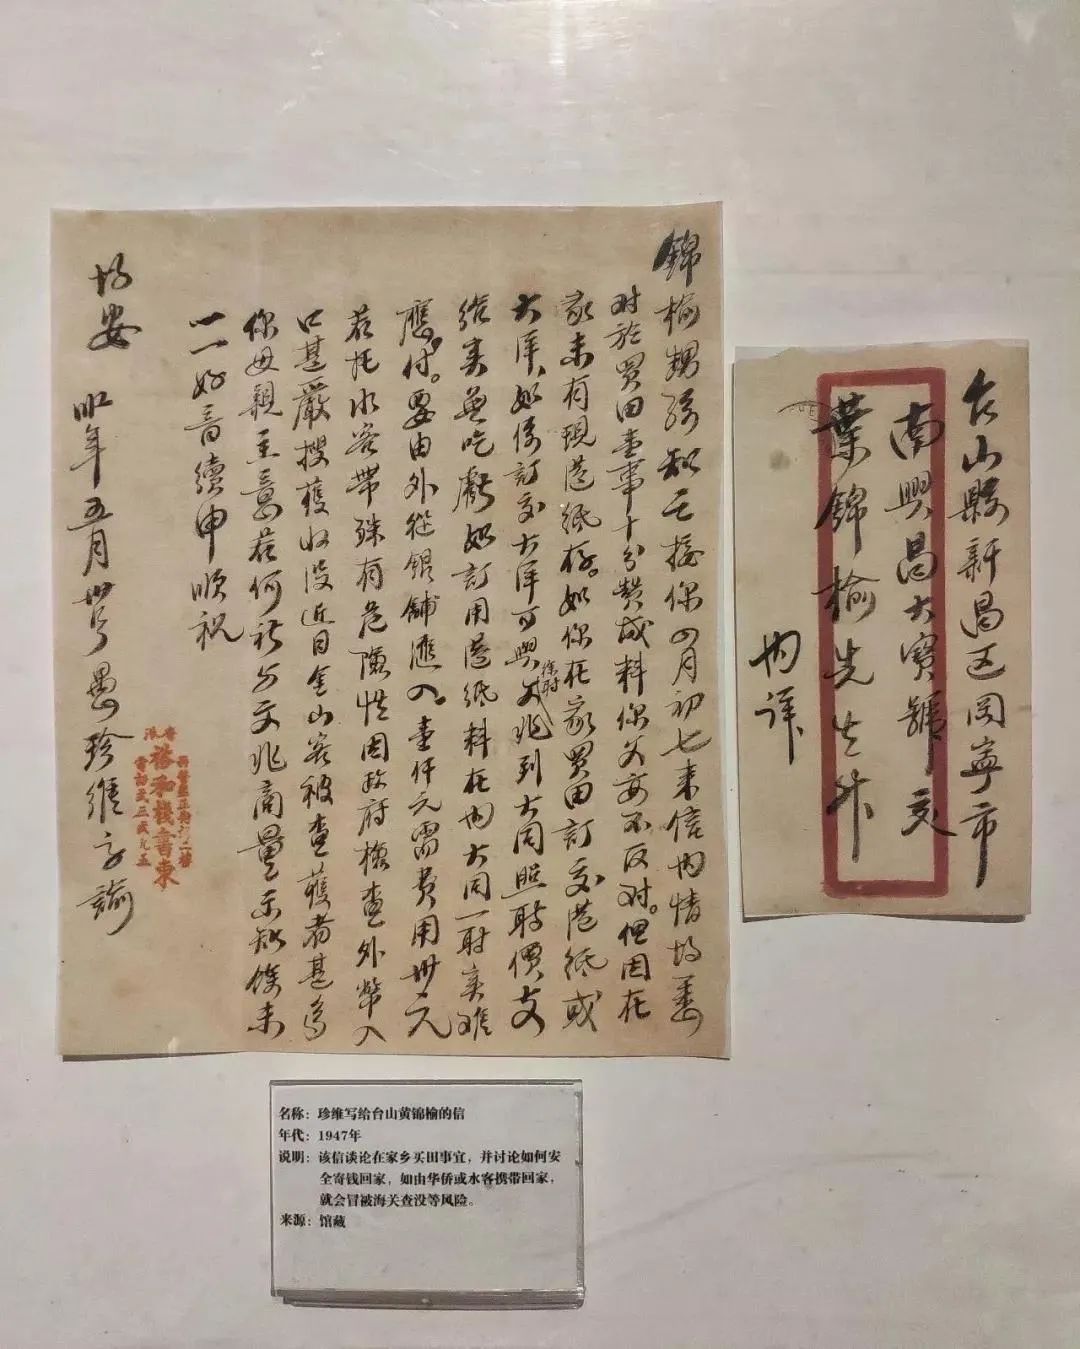 錦榆甥孫知之接你四月初七來信內情均悉
對於買田壹事十分贊成料你父母不反对。但因在
家未有現港紙存。如你在家買田訂交港紙或
大洋、如係訂交大洋可與文兆到大同照時價支
給卖並吃虧如訂用港紙料在內大同一时卖难
應付。要由外從銀舖滙入。壹仟元需費用卅元
若托水客帶殊有危險性因政府檢查外幣入
口甚嚴搜獲收沒近日金山客被查獲者甚多
你母親主意若何祈与文兆商量示知餘未
一一好音續申順祝
均安
卅年五月卅号愚珍維字諭
香港
裕和棧書柬
台山縣新昌区同寧市
南興昌大寶號交
葉錦榆先生升
內詳
名称：珍维写给台山黄锦榆的信
年代：1947年
说明：该信谈论在家乡买田事宜，并讨论如何安
全寄钱回家，如由华侨或水客携带回家，
就会冒被海关查没等风险。
来源：馆藏